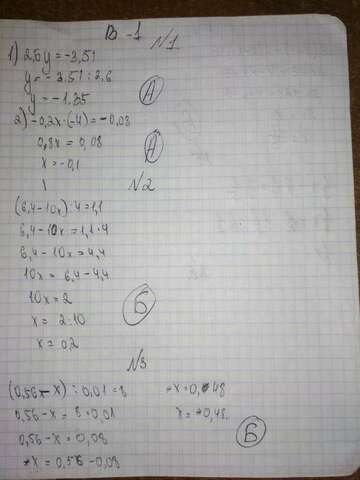 В-1
№1
1) 2,6y = -3,51
y = -3,51 : 2,6
y = -1.35
А
2) -0,2x · (-4) = -0,08
0,8x = 0,08
x = -0,1
А
№2
(6,4-10x) : 4 = 1,1
6,4-10x = 1,1 · 4
6,4-10x = 4,4
10x = 6,4-4,4
10x = 2
x = 2·10
x = 0,2
Б
№3
(0,56-x) : 0,01 = 8
0,56-x = 8 · 0,01
0,56-x = 0,08
x = 0,56-0,08
x = 0,48
x = 0,48.
Б